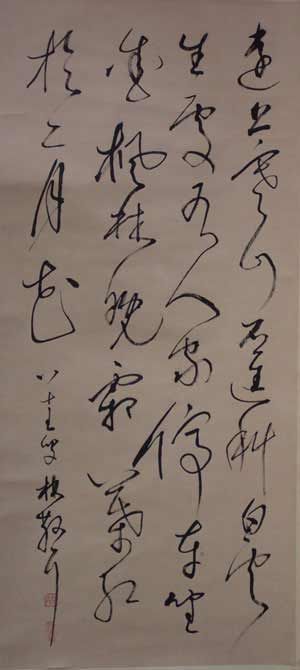 遠上寒山石徑斜白雲
生處有人家停車坐
愛楓林晚霜葉紅
於二月花
叟林散耳